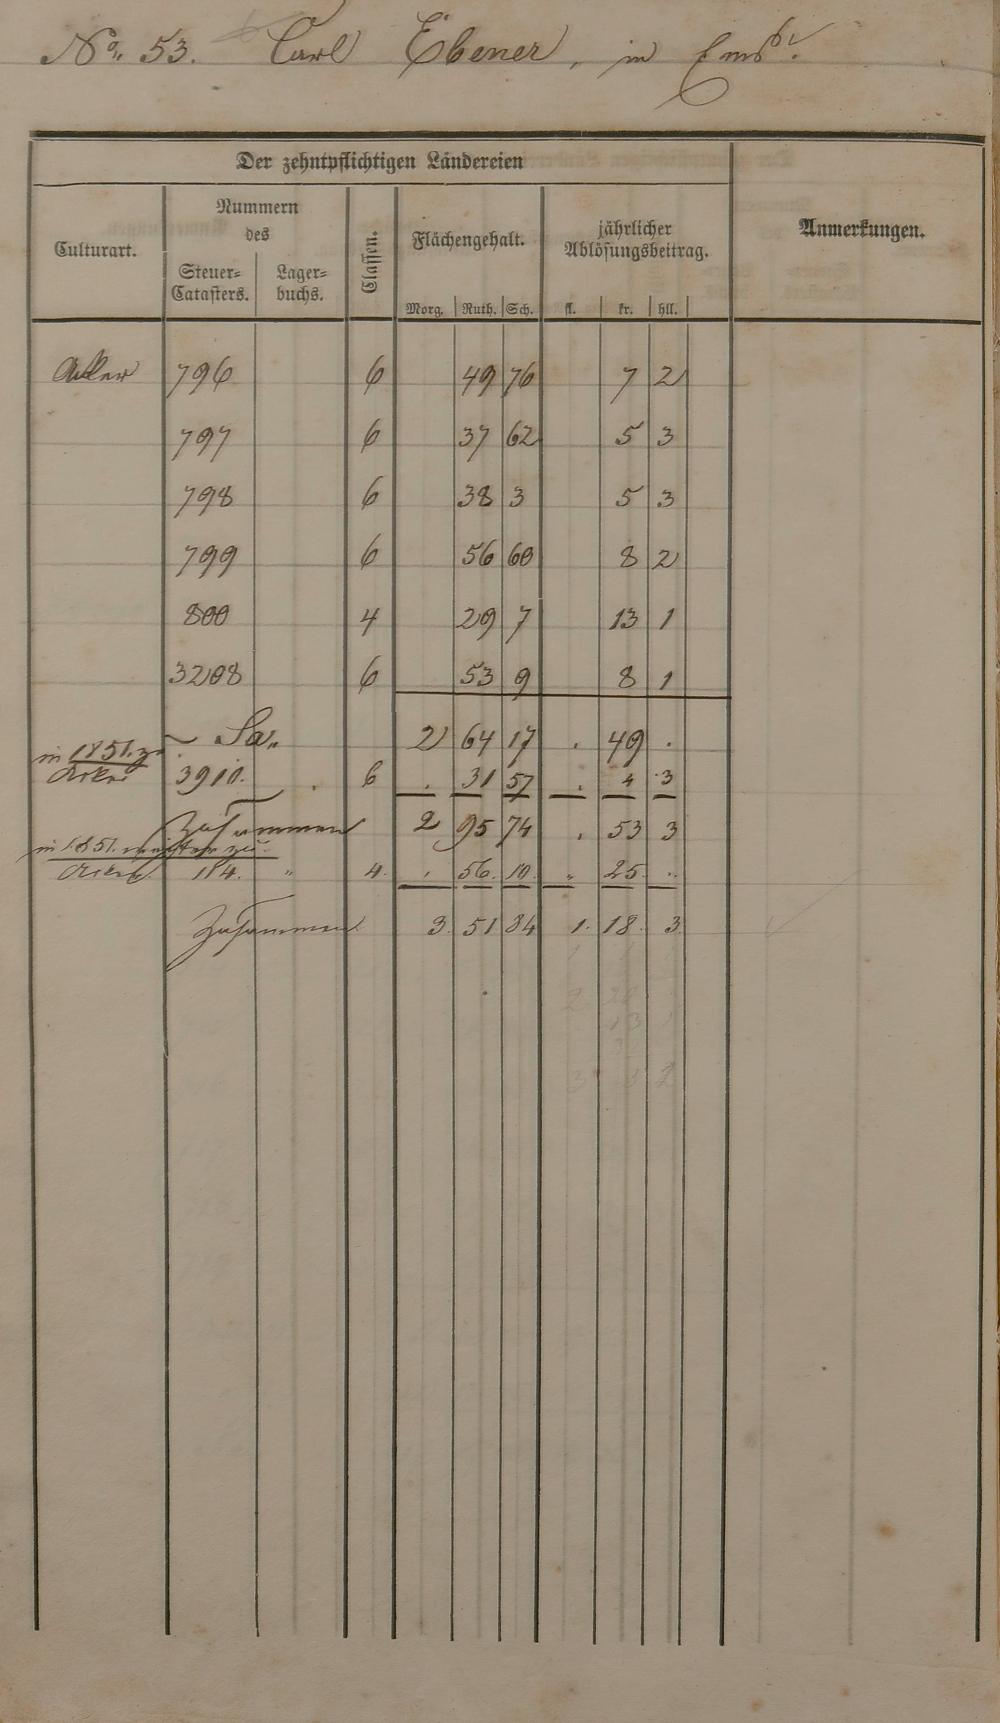 No. 53. Carl Ebener, in Ems
Der zehntpflichtigen Ländereien
Anmerkungen.
Culturart.
Nummern
des
Steuer=
Catasters.
Lager=
buchs.
Classen.
Flächengehalt.
jährlicher
Ablösungsbeitrag.
Morg. Ruth. Sch. fl. kr. hll.
Acker 796 6 49 76 7 2
797 6 37 62 5 3
798 6 38 3 5 3
799 6 56 60 8 2
800 4 29 7 13 1
3208 6 53 9 8 1
Sa. 2 64 17 . 49 .
in 1851. zu
Acker 3910. . 6 . 31 57 . 4 3
Zusammen 2 95 74 . 53 3
in 1851. weiter zu
Acker 184. " 4. . 56. 10. " 25. "
Zusammen 3. 51 84 1. 18. 3.